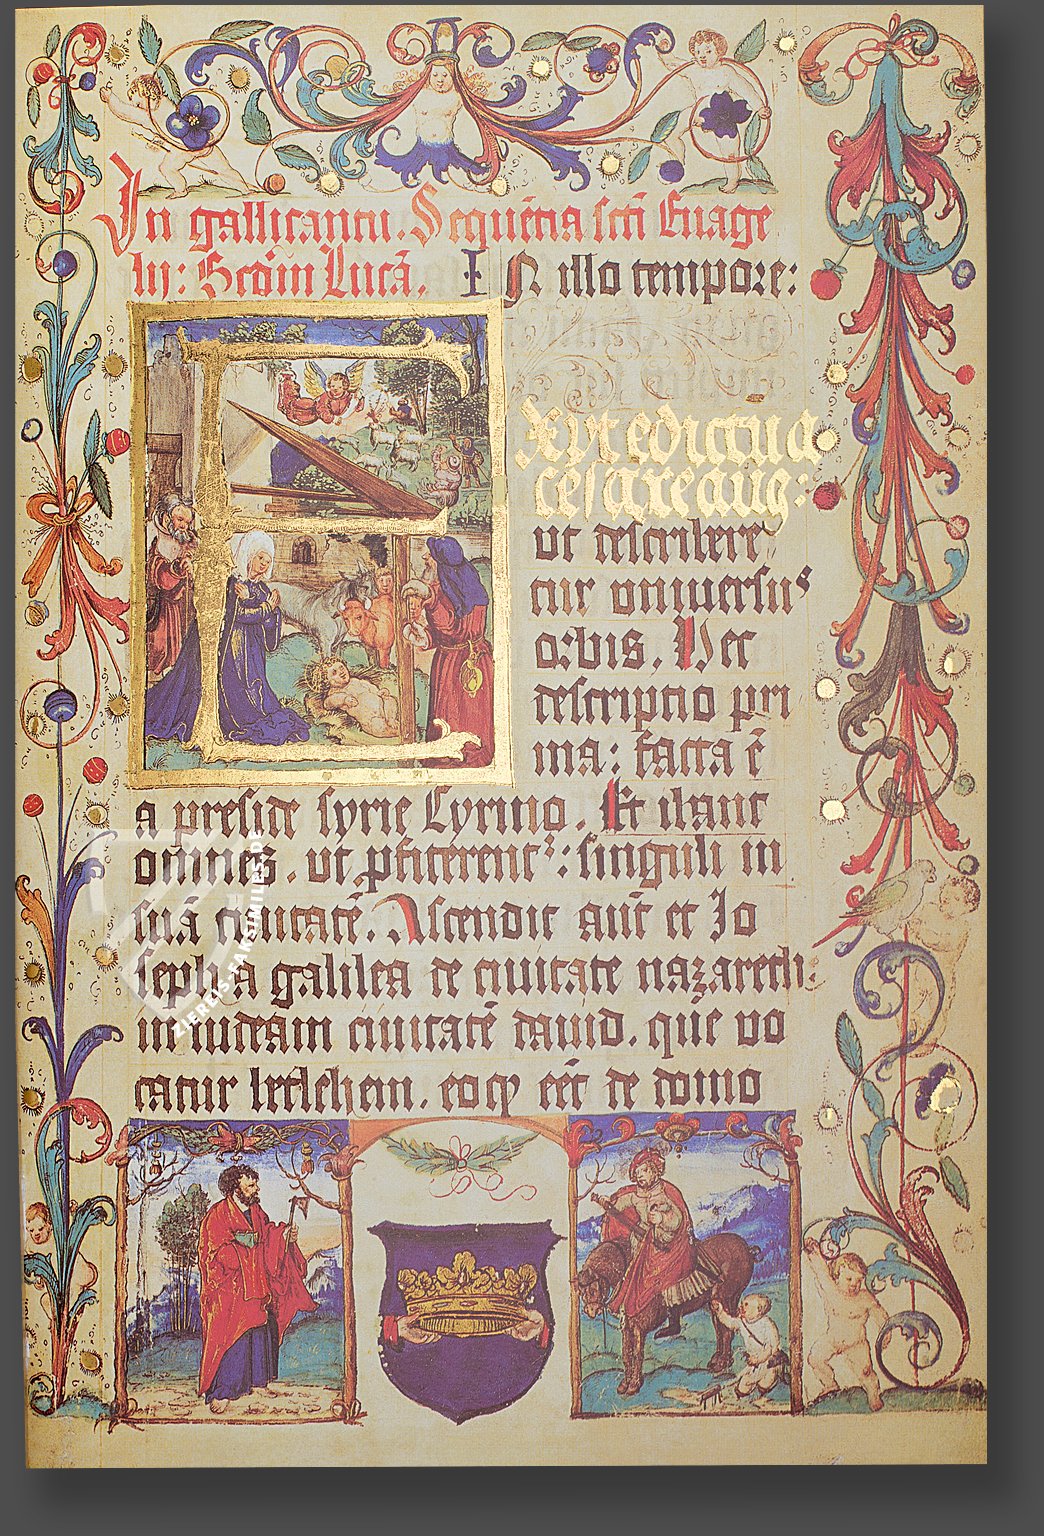 In gallicantu. Sequētia scti Euāge
lij: Scdm Lucā. IN illo tempore:
EXyt edictū a
cesare aug:
ut describere
tur uniuersus
orbis. Hec
descriptio pri
ma: facta ē
a preside syrie Cyrino. Et ibant
omnes. ut pfiterent: singuli in
suā ciuitatē. Ascendit aūt et Jo
seph a galilea de ciuitate nazareth:
in iudeam ciuitatē dauid. que vo
catur betlehem. eo qp eēt de domo
ZIEREIS-FAKSIMILES.DE